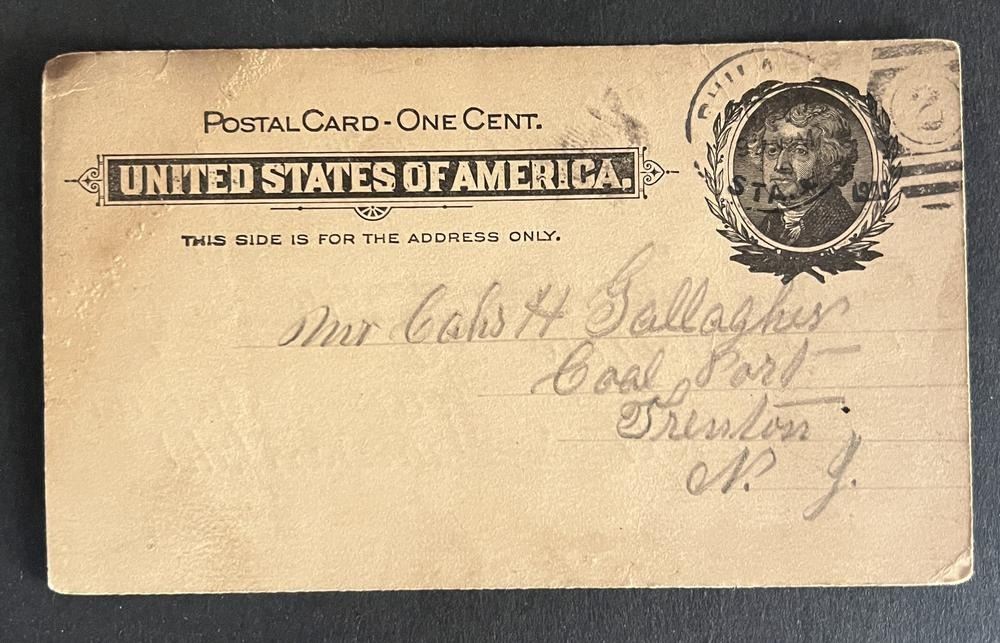 POSTAL CARD - ONE CENT.
UNITED STATES OF AMERICA.
THIS SIDE IS FOR THE ADDRESS ONLY.
PHILA
STA.
Mr H Gallagher
Coal Port
Trenton
N. J.